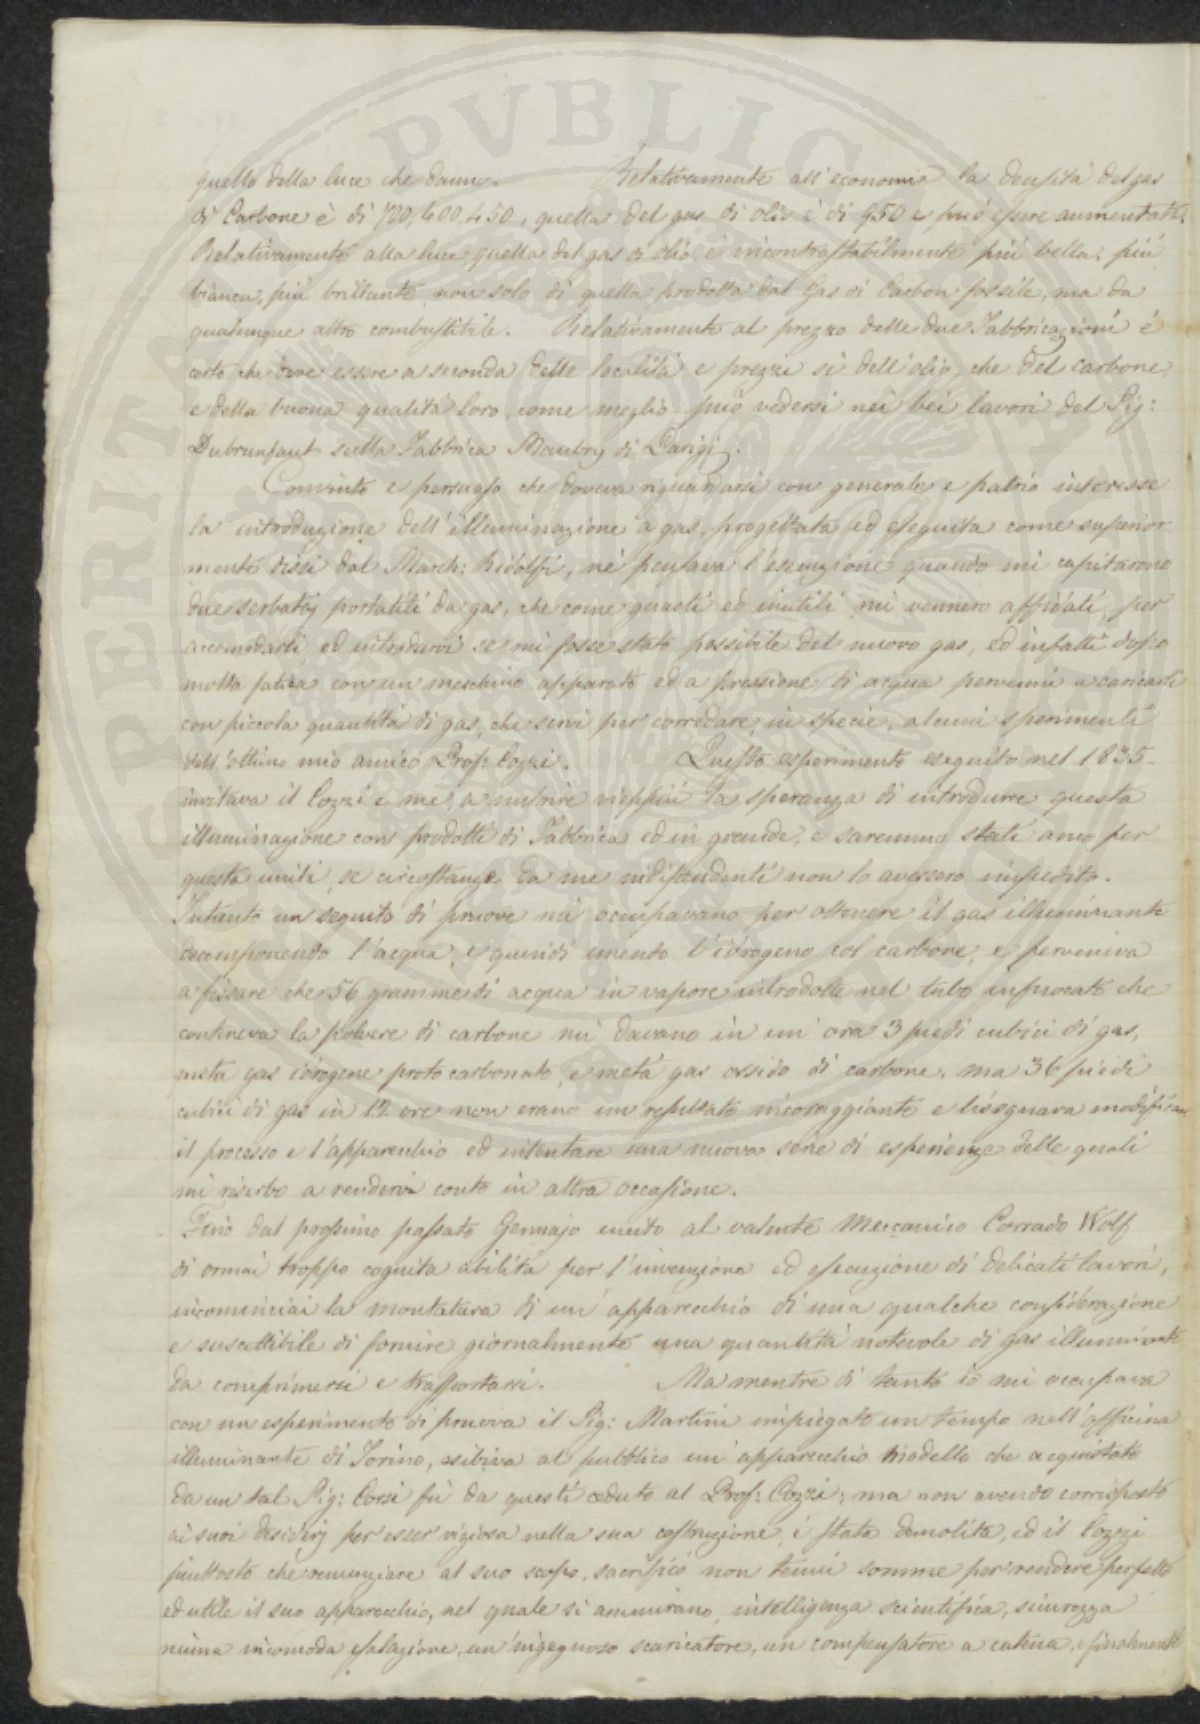 PROSPERITATI PUBLICAE
quello della luce che danno. Relativamente all'economia la densità del gas
di Carbone è di 720, 600, 450, quella del gas di olio è di 950 e può essere aumentata.
Relativamente alla luce quella del gas di olio è incontrastabilmente più bella; più
bianca, più brillante non solo di quella prodotta dal Gas di Carbon fossile, ma da
qualunque altro combustibile. Relativamente al prezzo delle due Fabbricazioni è
certo che deve essere a seconda delle località e prezzi sì dell'olio, che del carbone,
e della buona qualità loro, come meglio può vedersi nei bei lavori del Sig:
Dubrunfaut sulla Fabbrica Maubry di Parigi.
Convinto e persuaso che doveva riguardarsi con generale e patrio interesse
la introduzione dell'illuminazione a gas, progettata ed eseguita come superior-
mente dissi dal March: Ridolfi, nè pensava l'esecuzione quando mi capitarono
due serbatoj portatili da gas, che come guasti ed inutili mi vennero affidati, per
accomodarli, ed introdurvi se mi fosse stato possibile del nuovo gas, ed infatti dopo
molta fatica con un meschino apparato ed a pressione di acqua pervenni a caricarli
con piccola quantità di gas, che servì per corredare, in specie, alcuni sperimenti
dell'ottimo mio amico Prof: Cozzi. Questo esperimento eseguito nel 1835
invitava il Cozzi e me, a nutrire vieppiù la speranza di introdurre questa
illuminazione con prodotti di Fabbrica ed in grande, e saremmo stati anco per
questa uniti, se circostanze da me indipendenti non lo avessero impedito.
Intanto un seguito di pruove mi occupavano per ottenere il gas illuminante
decomponendo l'acqua, e quindi unendo l'idrogeno col carbone, e perveniva
a fissare che 56 gramme di acqua in vapore introdotte nel tubo infuocato che
conteneva la polvere di carbone mi davano in un'ora 3 piedi cubici di gas,
metà gas idrogene proto carbonato, e metà gas ossido di carbone. ma 36 piedi
cubici di gas in 12 ore non erano un resultato incoraggiante e bisognava modificare
il processo e l'apparecchio ed intentare una nuova serie di esperienze delle quali
mi riserbo a rendervi conto in altra occasione.
Fino dal prossimo passato Gennajo unito al valente Meccanico Corrado Wolf
di ormai troppo cognita abilità per l'invenzione ed esecuzione di delicati lavori,
incominciai la montatura di un'apparecchio di una qualche considerazione
e suscettibile di fornire giornalmente una quantità notevole di gas illuminante
da comprimersi e trasportarsi. Ma mentre di tanto io mi occupava
con un esperimento di pruova il Sig: Martini impiegato un tempo nell'officina
illuminante di Torino, esibiva al pubblico un'apparecchio modello che acquistato
da un tal Sig: Corsi fù da questi ceduto al Prof: Cozzi; ma non avendo corrisposto
ai suoi desiderj per esser viziosa nella sua costruzione, è stata demolita, ed il Cozzi
piuttosto che renunziare al suo scopo, sacrificò non tenui somme per rendere perfetto
ed utile il suo apparecchio, nel quale si ammirano intelligenza scientifica, sicurezza
niuna incomoda esalazione, un'ingegnoso scaricatore, un compensatore a catena, e finalmente